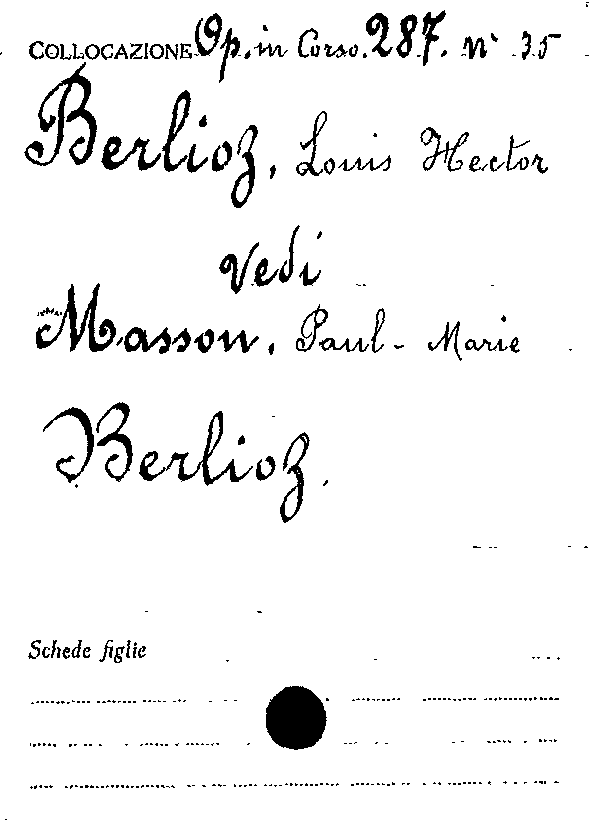 COLLOCAZIONE Op. in Corso. 287. n° 35
Berlioz, Louis Hector
vedi
Masson, Paul-Marie
Berlioz.
Schede figlie